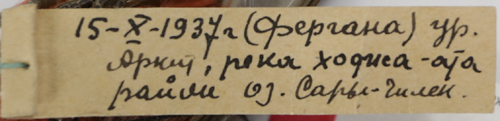 15-X-1937г (Фергана) ур.
Аркит, река ходжа-ата
район оз. Сары-Чилек.